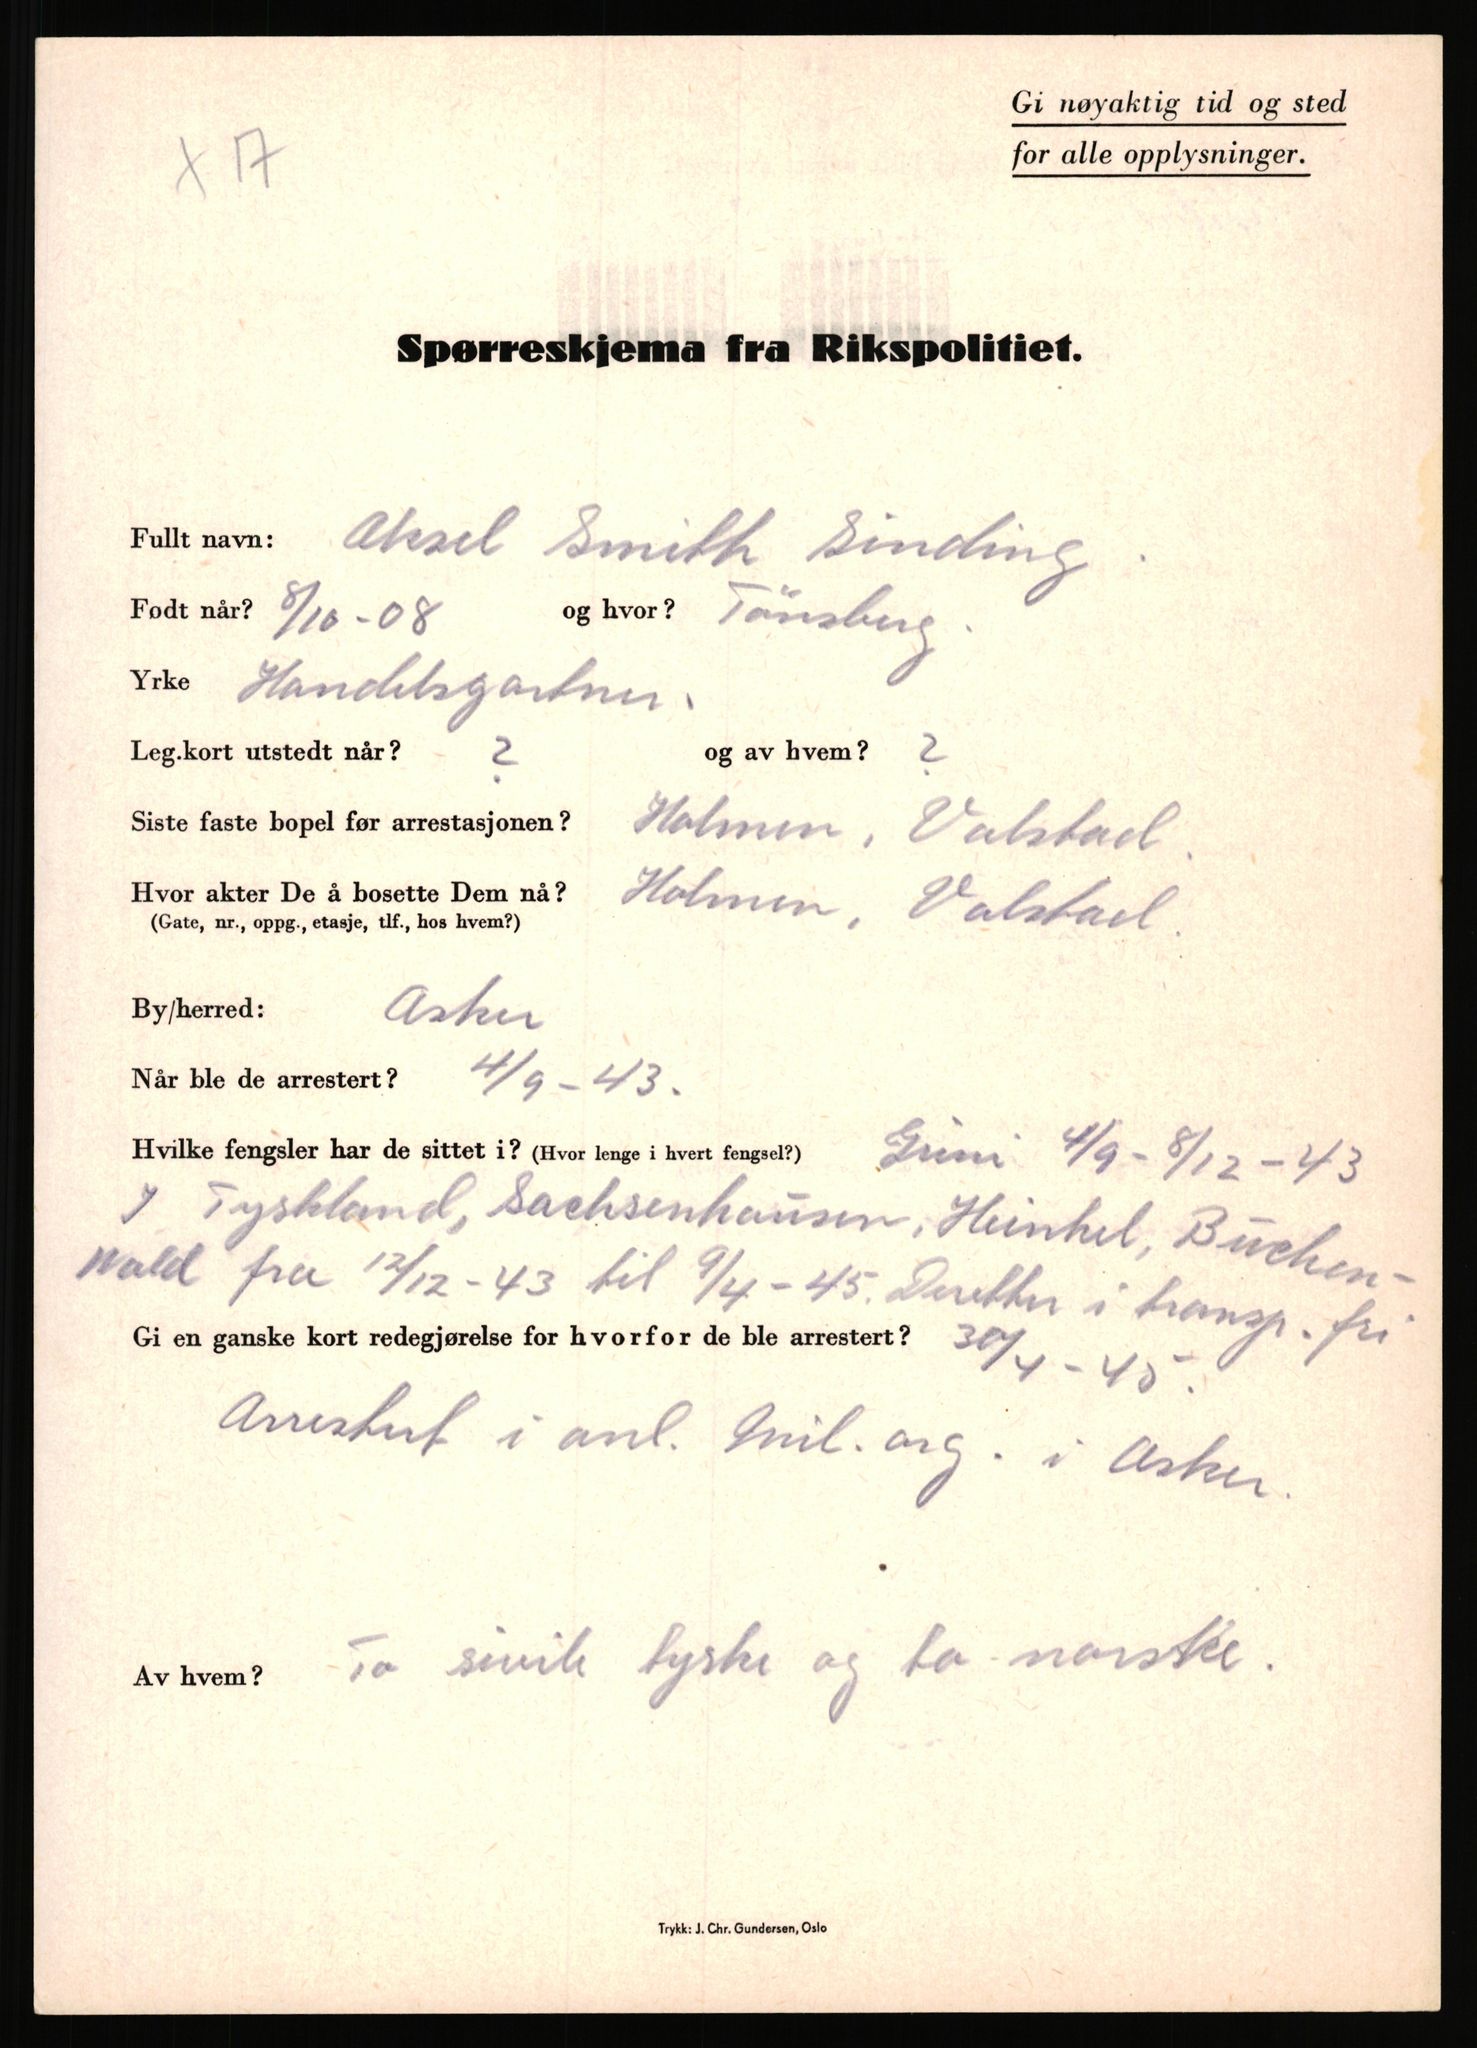 Gi nøyaktig tid og sted
for alle opplysninger.
X 17
Spørreskjema fra Rikspolitiet.
Fullt navn: Aksel Smith Sinding.
Født når? 8/10-08 og hvor? Tönsberg.
Yrke Handelsgartner.
Leg.kort utstedt når? ? og av hvem? ?
Siste faste bopel før arrestasjonen? Holmen, Valstad.
Hvor akter De å bosette Dem nå? Holmen, Valstad.
(Gate, nr., oppg., etasje, tlf., hos hvem?)
By/herred: Asker
Når ble de arrestert? 4/9-43.
Hvilke fengsler har de sittet i? (Hvor lenge i hvert fengsel?) Grini 4/9-8/12-43
I Tyskland, Sachsenhausen, Heinkel, Buchen-
wald fra 12/12-43 til 9/4-45. Deretter i transp. fri
Gi en ganske kort redegjørelse for hvorfor de ble arrestert? 30/4-45.
Arrestert i anl. Mil.org. i Asker.
Av hvem? To sivile tyske og to norske.
Trykk: J. Chr. Gundersen, Oslo